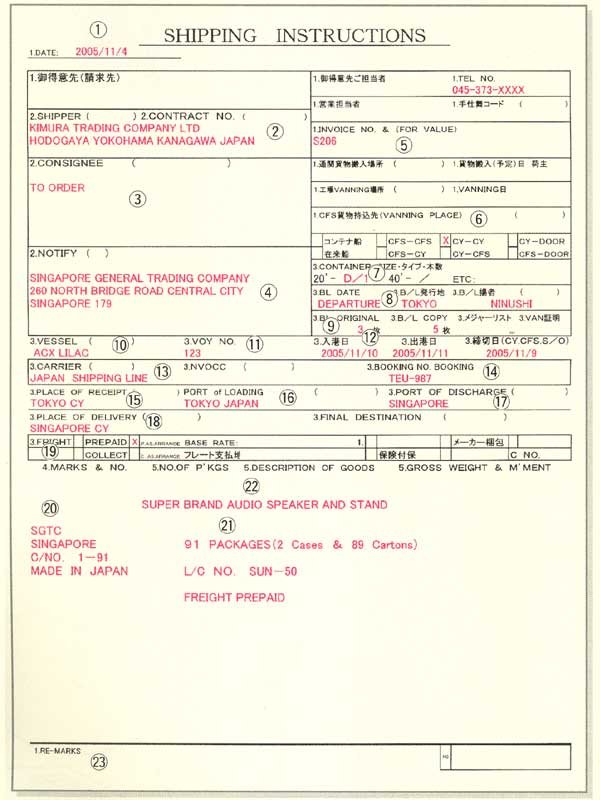 ① SHIPPING INSTRUCTIONS
1.DATE: 2005/11/4
1.御得意先(請求先) 1.御得意先ご担当者 1.TEL NO.
045-373-XXXX
1.営業担当者 1.手仕舞コード ( )
2.SHIPPER ( ) 2.CONTRACT NO. ( )
KIMURA TRADING COMPANY LTD ②
HODOGAYA YOKOHAMA KANAGAWA JAPAN
1.INVOICE NO. & (FOR VALUE)
S206 ⑤
2.CONSIGNEE ( )
TO ORDER
③
1.通関貨物搬入場所 ( ) 1.貨物搬入(予定)日 荷主
1.工場VANNING場所 ( ) 1.VANNING日
1.CFS貨物持込先(VANNING PLACE) ⑥ ( )
コンテナ船 CFS-CFS X CY-CY CY-DOOR
在来船 CFS-CY CY-CFS CFS-DOOR
2.NOTIFY ( )
SINGAPORE GENERAL TRADING COMPANY
260 NORTH BRIDGE ROAD CENTRAL CITY ④
SINGAPORE 179
3.CONTAINER SIZE-タイプ-本数
20'- D/1 ⑦ 40'- / ETC:
3.BL DATE ⑧ B/L発行地 3.B/L揚者 ( )
DEPARTURE TOKYO NINUSHI
3.B/L ORIGINAL 3.B/L COPY 3.メジャーリスト 3.VAN証明
⑨ 3 枚 5 枚
3.VESSEL ( ) ⑩ 3.VOY NO. ⑪ 3.入港日 ⑫ 3.出港日 3.締切日(CY.CFS.S/O)
ACX LILAC 123 2005/11/10 2005/11/11 2005/11/9
3.CARRIER ( ) ⑬ 3.NVOCC ( ) 3.BOOKING NO. BOOKING ⑭
JAPAN SHIPPING LINE TEU-987
3.PLACE OF RECEIPT ⑮ ) PORT of LOADING ⑯ ( ) 3.PORT OF DISCHARGE ( )
TOKYO CY TOKYO JAPAN SINGAPORE ⑰
3.PLACE OF DELIVERY ( ⑱ ) 3.FINAL DESTINATION ( )
SINGAPORE CY
3.FRIGHT PREPAID X P.AS.ARRANGE BASE RATE: 1. メーカー梱包
⑲ COLLECT C.AS.ARRANGE プレート支払地 保険付保 C NO.
4.MARKS & NO. 5.NO.OF P'KGS 5.DESCRIPTION OF GOODS 5.GROSS WEIGHT & M'MENT
㉒
SUPER BRAND AUDIO SPEAKER AND STAND
⑳ ㉑
SGTC
SINGAPORE 91 PACKAGES(2 Cases & 89 Cartons)
C/NO. 1-91
MADE IN JAPAN L/C NO. SUN-50
FREIGHT PREPAID
1.RE-MARKS
㉓ NO